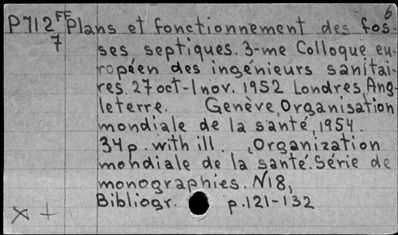 6
P712 FF Plans et fonctionnement des fos-
7 ses septiques. 3-me Colloque eu-
ropéen des ingénieurs sanitai-
res. 27 oct-1 nov. 1952 Londres, Ang-
leterre. Genève, Organisation
mondiale de la santé, 1954.
34 p. with ill. (Organization
mondiale de la santé. Série de
monographies. N18,
Bibliogr. p. 121-132
x +